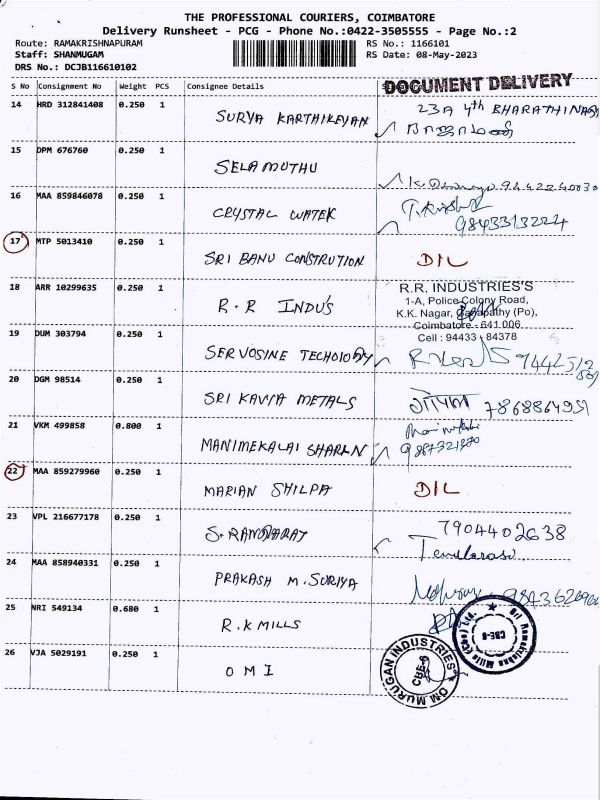 THE PROFESSIONAL COURIERS, COIMBATORE
Delivery Runsheet - PCG - Phone No.:0422-3505555 - Page No.:2
Route: RAMAKRISHNAPURAM RS No.: 1166101
Staff: SHANMUGAM RS Date: 08-May-2023
DRS No.: DCJB116610102
S No Consignment No Weight PCS Consignee Details DOCUMENT DELIVERY
14 HRD 312841408 0.250 1 SURYA KARTHIKEYAN 23A 4th BHARATHI
15 DPM 676760 0.250 1 SELAMUTHU
16 MAA 859846078 0.250 1 CRYSTAL WATER 9843313224
17 MTP 5013410 0.250 1 SRI BANU CONSTRUTION D/L
18 ARR 10299635 0.250 1 R.R INDU'S
R.R. INDUSTRIES'S
1-A, Police Colony Road,
K.K. Nagar, Ganapathy (Po),
Coimbatore - 641 006.
Cell : 94433 - 84378
19 DUM 303794 0.250 1 SERVOSINE TECHOLOGY
20 DGM 98514 0.250 1 SRI KAVYA METALS 7868864951
21 VKM 499858 0.800 1 MANIMEKALAI SHAREN
22 MAA 859279960 0.250 1 MARIAN SHILPA D/L
23 VPL 216677178 0.250 1 7904402638
24 MAA 858940331 0.250 1 PRAKASH M.SURIYA
25 NRI 549134 0.680 1 R.K MILLS
Sri Ramakrishna Mills (Cbe) Ltd.
CBE-6
26 VJA 5029191 0.250 1 OMI
OM MURUGAN INDUSTRIES
CBE-6